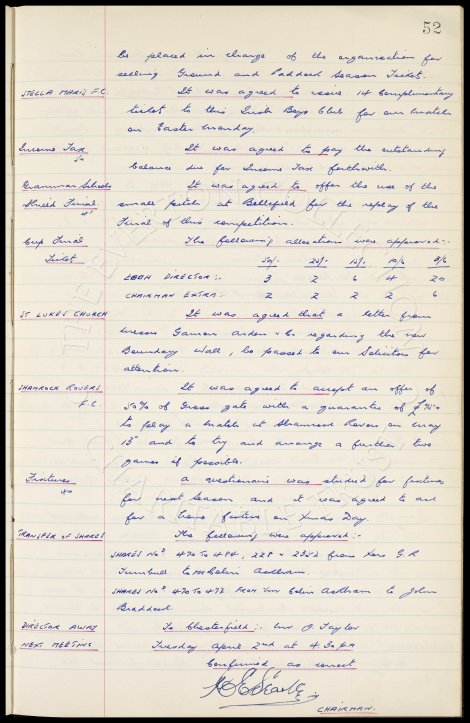 52
be placed in charge of the organisation for
selling Ground and Paddock Season Ticket.
STELLA MARIS F.C. It was agreed to issue 14 complimentary
ticket to this Irish Boys Club for our match
on Easter Monday
Income Tax It was agreed to pay the outstanding
balance due for Income Tax forthwith.
Grammar Schools It was agreed to offer the use of the
Shield Final small pitch at Bellefield for the replay of the
Final of this competition.
Cup Final The following allocations were approved:-
Ticket 50/- 25/- 15/- 10/6 3/6
EACH DIRECTOR:- 3 2 6 4 20
CHAIRMAN EXTRA:- 2 2 2 2 6
ST LUKES CHURCH It was agreed that a letter from
Messrs Gamon Arden & Co regarding the new
Boundary Wall, be passed to our Solicitors for
attention.
SHAMROCK ROVERS It was agreed to accept an offer of
F.C 50% of Gross gate with a guarantee of
to play a match at Shamrock Rovers on May
13th and to try and arrange a further two
games if possible.
Fixtures a questionaire was studied for fixtures
for next Season and it was agreed to ask
for a home fixture on Xmas Day.
TRANSFER OF SHARES The following were approved:-
SHARES Nos 470 TO 484, 228 & 2352 from G.R
Turnbull to Mr Colin Askham.
SHARES Nos 470 TO 472 FROM Mr Colin Askham to John
Braddock.
DIRECTOR AWAY To Chesterfield:- Mr O. Taylor
NEXT MEETING Tuesday April 2nd at 4.30pm
Confirmed as correct
CHAIRMAN.